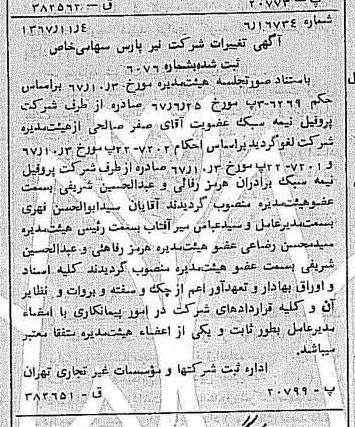 پ — ۲۰۷۷۳ ق — ۳۸۲۵۶۲
شماره ۶/۱۶۷۳۴ ۱۳۶۷/۱۱/۴
آگهی تغییرات شرکت تیر پارس سهامی‌خاص
ثبت شده‌بشماره ۶۰۷۶
باستناد صورتجلسه هیئت‌مدیره مورخ ۶۷/۱۰/۳ براساس
حکم ۶۲۶۹–۳پ مورخ ۶۷/۶/۲۵ صادره از طرف شرکت
پروفیل نیمه سبک عضویت آقای صفر صالحی ازهیئت‌مدیره
شرکت لغو گردید براساس احکام ۷۲۰۲–۲۲پ مورخ ۶۷/۱۰/۳
و ۷۲۰۱–۲۲پ مورخ ۶۷/۱۰/۳ صادره ازطرف شرکت پروفیل
نیمه سبک برادران هرمز رفائی و عبدالحسین شریفی بسمت
عضوهیئت‌مدیره منصوب گردیدند آقایان سیدابوالحسن قهری
بسمت‌مدیرعامل و سیدعباس میرآفتاب بسمت رئیس هیئت‌مدیره
سیدمحسن رضاعی عضو هیئت‌مدیره هرمز رفاهی و عبدالحسین
شریفی بسمت عضو هیئت‌مدیره منصوب گردیدند کلیه اسناد
و اوراق بهادار و تعهدآور اعم از چک و سفته و بروات و نظایر
آن و کلیه قراردادهای شرکت در امور پیمانکاری با امضاء
مدیرعامل بطور ثابت و یکی از اعضاء هیئت‌مدیره متفقا معتبر
میباشد.
اداره ثبت شرکتها و مؤسسات غیر تجاری تهران
پ — ۲۰۷۹۹ ق — ۳۸۲۶۵۱